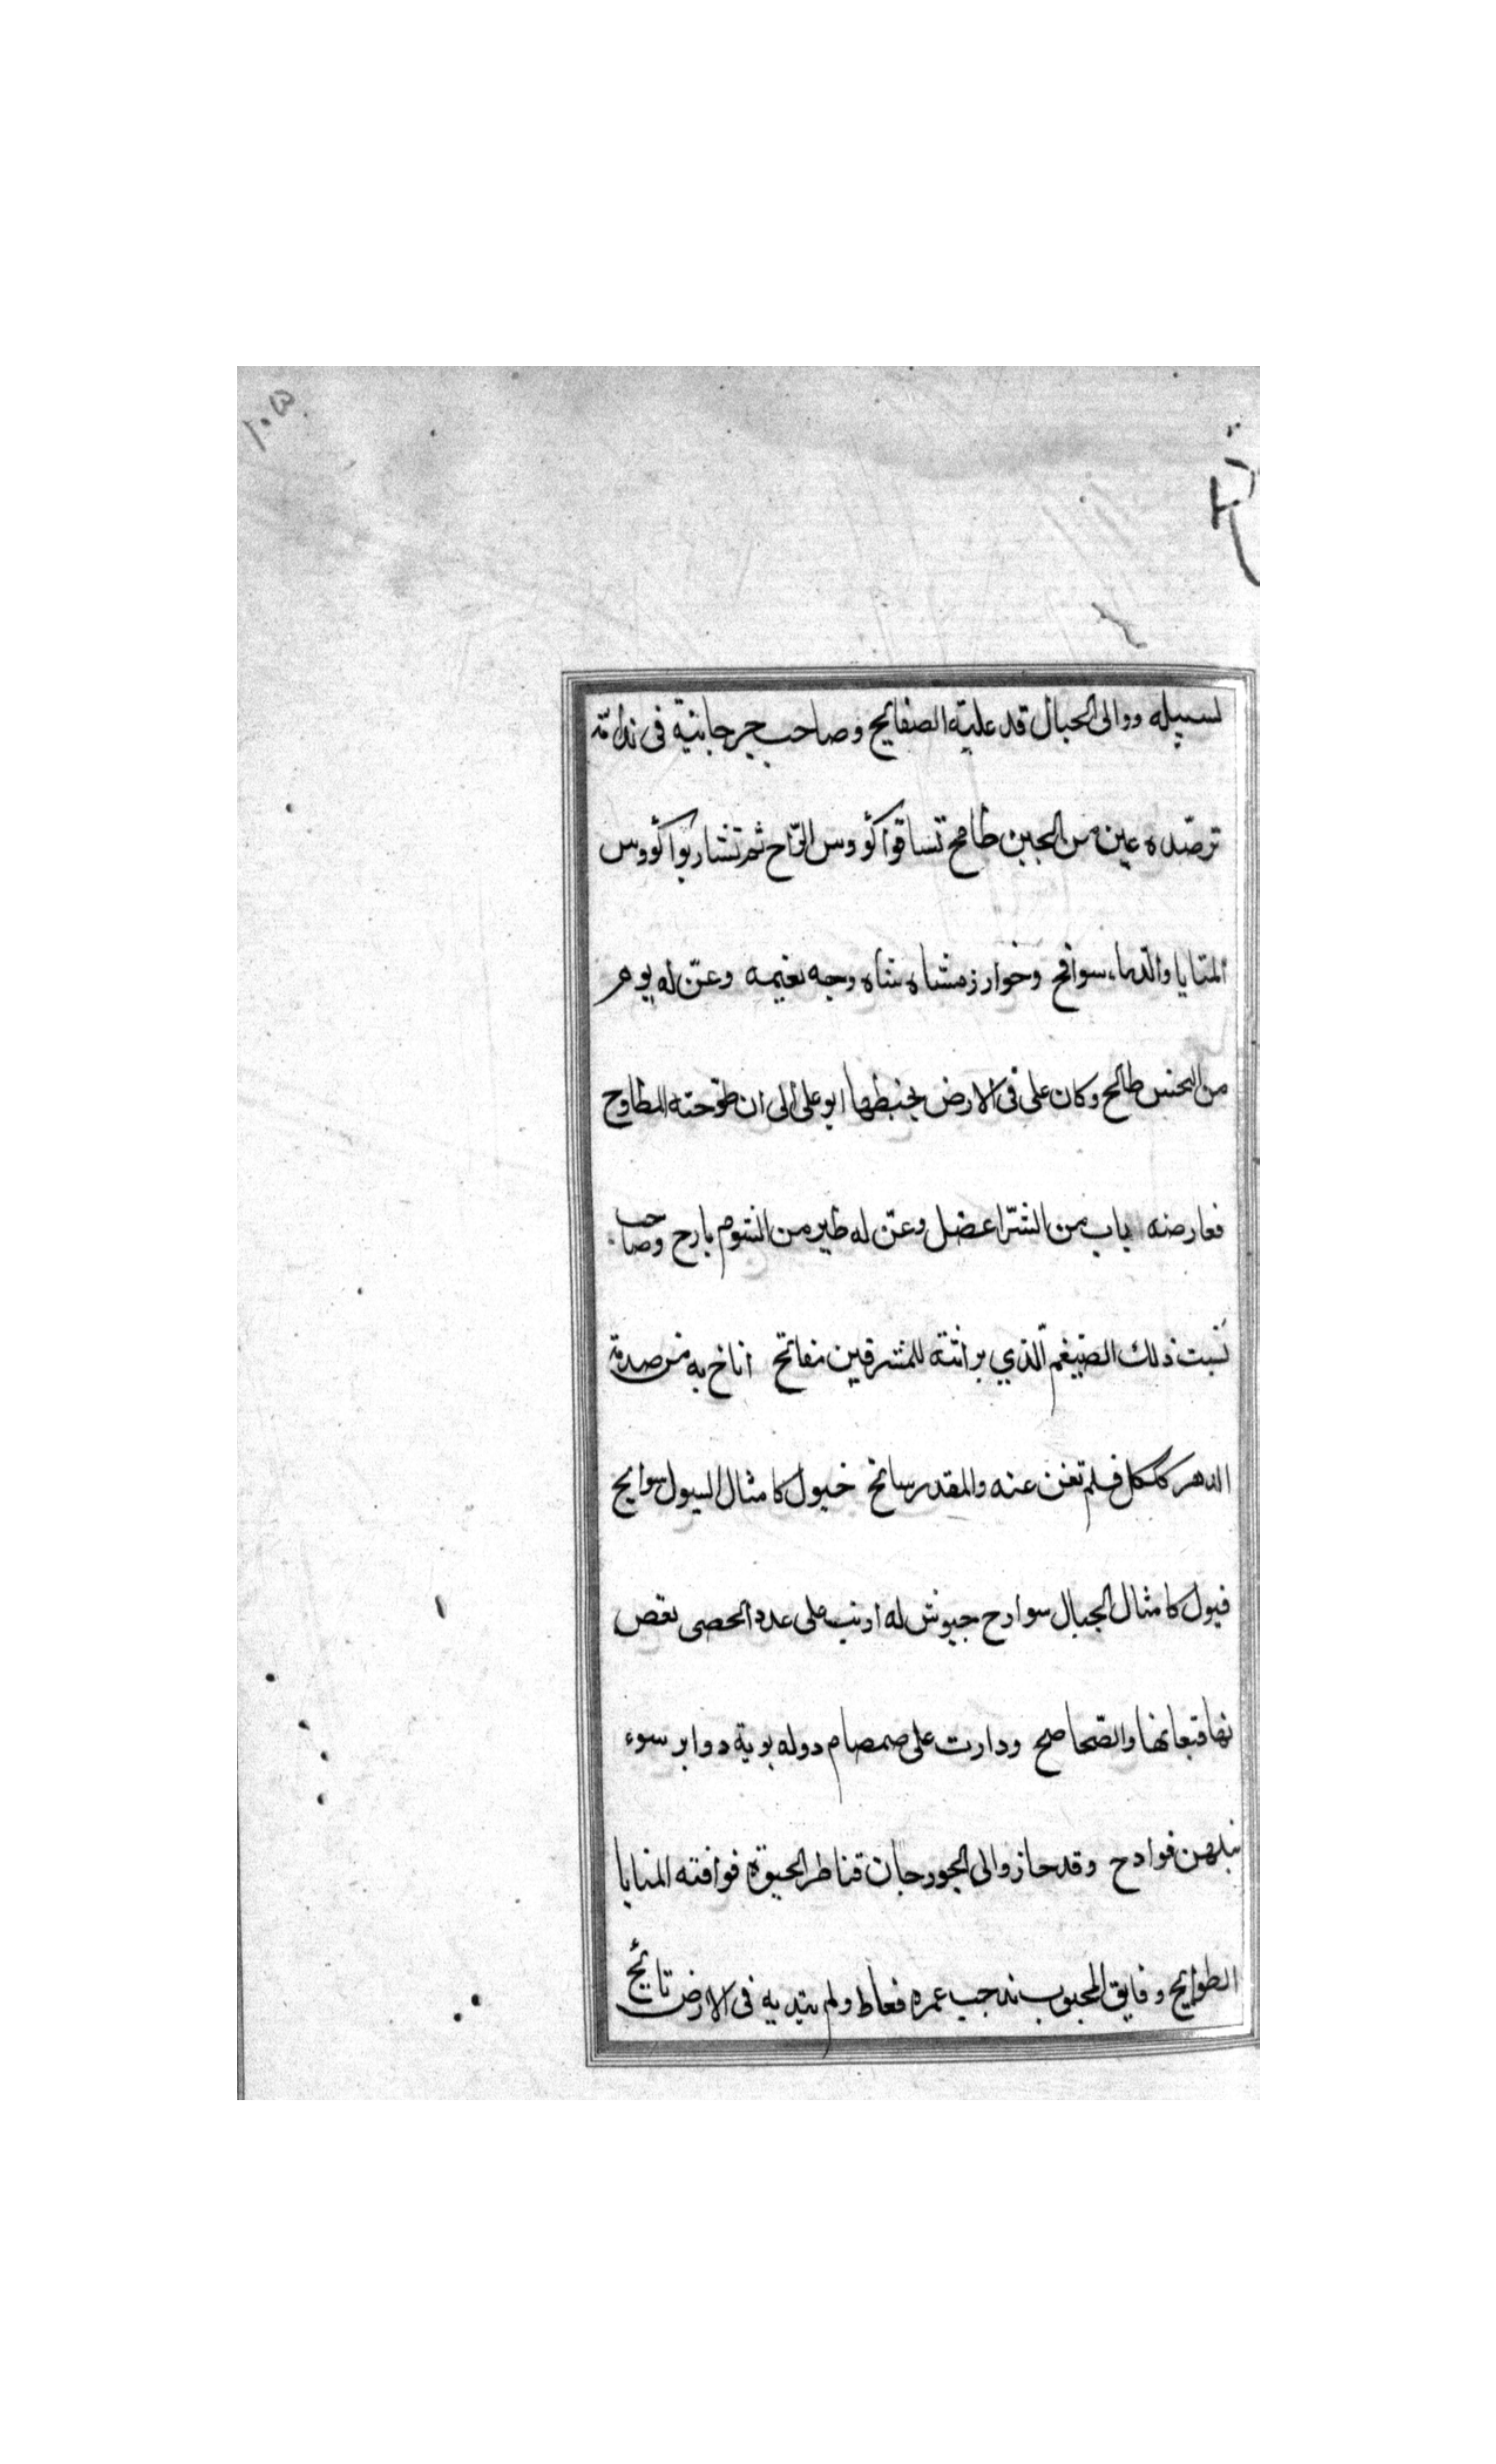 ١٠٥
لسبيله ووالى الحبال قد علية الصفايح وصاحب جرجانية فى ندامة
ترصّده عين من الجبن طامح تساقوا كؤوس الرّاح ثم تشاربوا كؤوس
المنايا والدّماء سوافح وخوارزمشاه شاه وجه نعيمه وعنّ له يوهر
من النحس طالح وكان على فى الارض يخبطها ابو على الى ان طوّحته المطاوح
فعارضه باب من الشرّ اعضل وعنّ له طير من الشوم بارح وصاحب
بست ذلك الضيغم الّذي براثنه للمشرقين مفاتح اناخ به من صدمة
الدهر كلكل فلم تغن عنه والمقدر سانح خيول كامثال السيول سوايح
فيول كامثال الجبال سوارح جيوش له اربت على عدد الحصى تغص
بها قيعانها والصّحاصح ودارت على صمصام دوله بوية دواير سوء
نبلهن فوادح وقد حاز والى الجورجان قناطر الحيوة فوافته المنايا
الطوايح وفايق المجبوب ندجب عمره فعاط ولم يتدبه فى الارض نائح